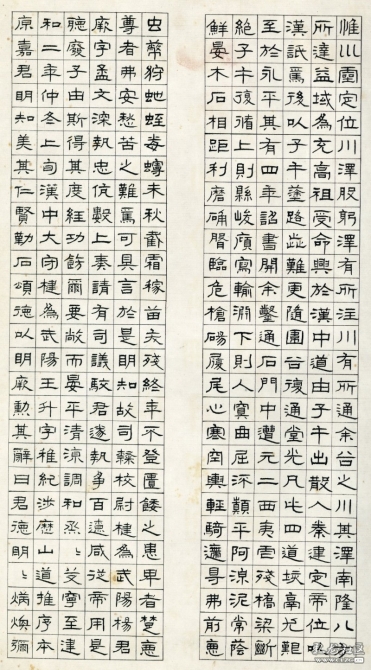 惟川靈定位川澤股躬澤有所注川有所通余谷之川其澤南隆八方
所達益域為充高祖受命興於漢中道由子午出散入秦建定帝位以
漢詆焉後以子午塗路歰難更隨圍谷復通堂光凡此四道垓鬲尤艱
至於永平其有四年詔書開余鑿通石門中遭元二西夷虐殘橋梁斷
絕子午復循上則縣峻廎寫輸淵下則入冥曲屈流顛平阿涼泥常蔭
鮮晏木石相距利磨确磐臨危槍碭履尾心寒空輿輕騎遰㝵弗前惡
虫蔽狩蛇蛭毒蟃未秋截霜稼苗夭殘終年不登匱餧之患卑者楚惡
尊者弗安愁苦之難焉可具言於是明知故司隸校尉楗為武陽楊君
厥字孟文深執忠伉數上奏請有司議駮君遂執爭百遼咸從帝用是
聽廢子由斯得其度經功飭爾要敞而晏平清涼調和烝〻艾寧至建
和二年仲冬上旬漢中大守楗為武陽王升字稚紀涉歷山道推序本
原嘉君明知美其仁賢勒石頌德以明厥勳其辭曰君德明〻炳煥彌